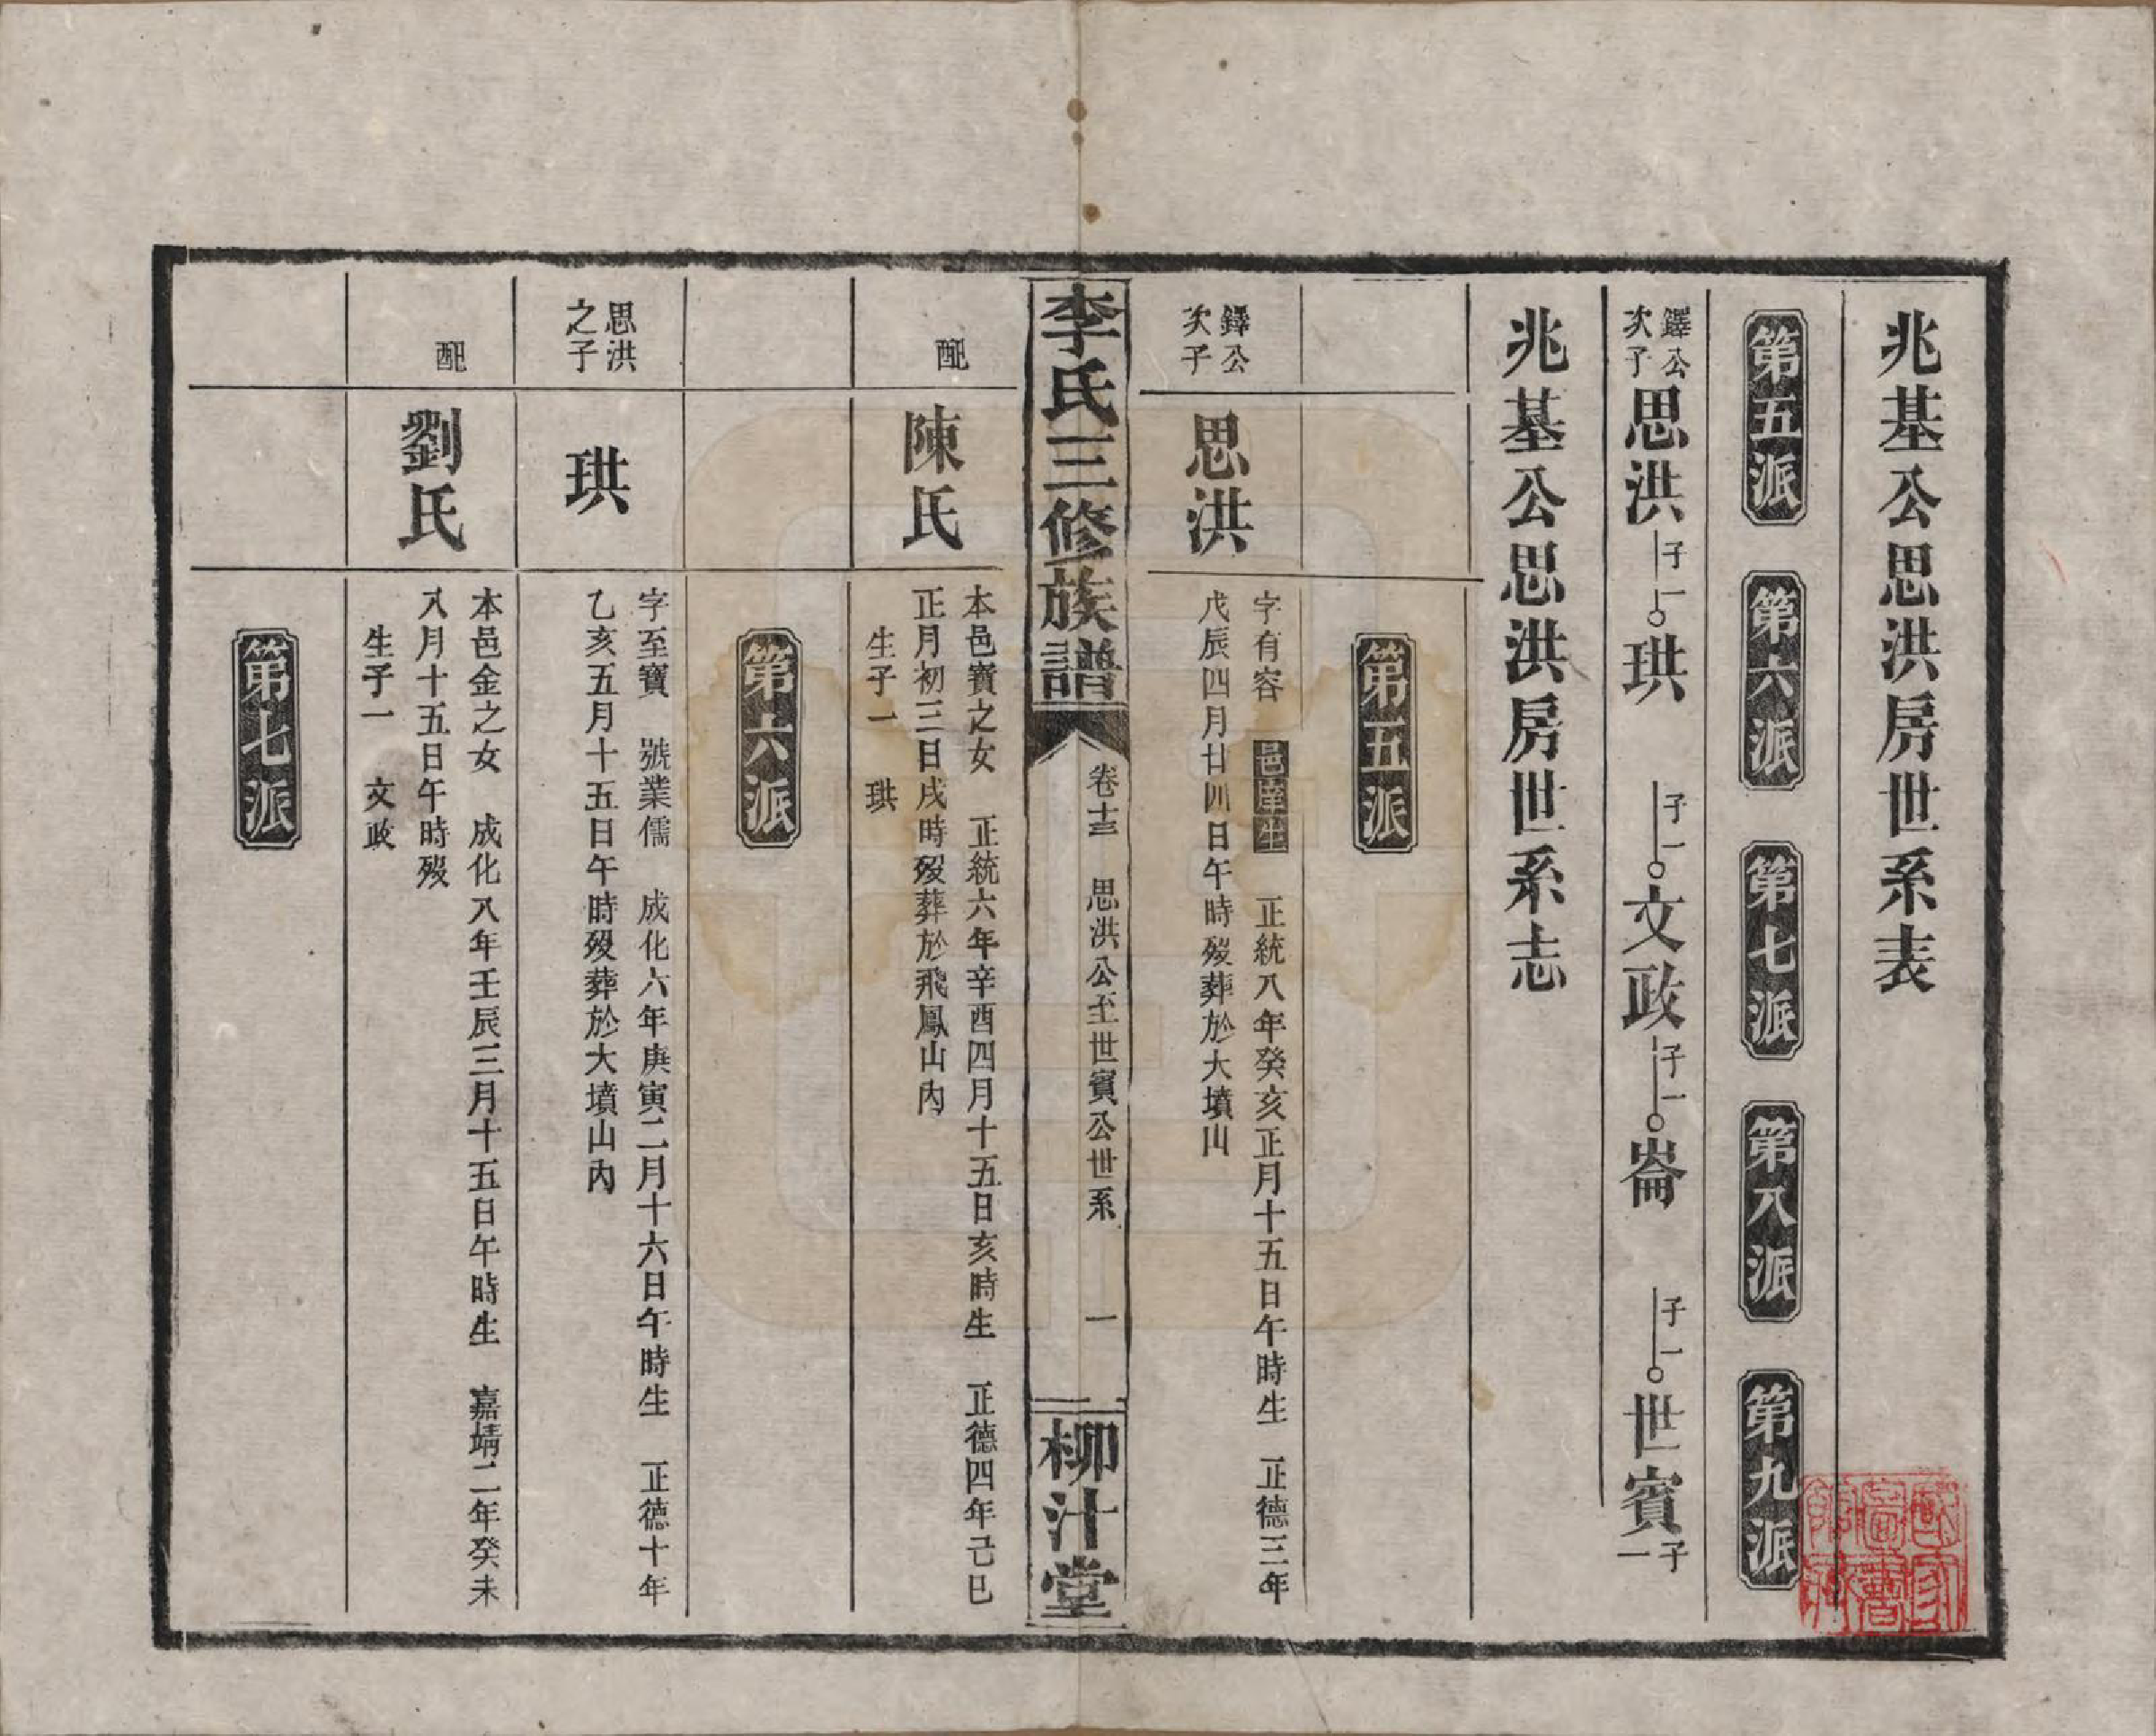 兆基公思洪房世系表
第五派
第六派
第七派
第八派
第九派
鐸公次子
思洪
子一
珙
子一
文政
子一
崙
子一
世賓
子一
兆基公思洪房世系志
第五派
鐸公次子
思洪
字有容 邑庠生 正統八年癸亥正月十五日午時生 正德三年
戊辰四月廿四日午時歿葬於大墳山
李氏三修族譜
卷十三 思洪公至世賓公世系 一
柳汁堂
配
陳氏
本邑寶之女 正統六年辛酉四月十五日亥時生 正德四年己巳
正月初三日戌時歿葬於飛鳳山內
生子一 珙
第六派
思洪之子
珙
字至寶 號業儒 成化六年庚寅二月十六日午時生 正德十年
乙亥五月十五日午時歿葬於大墳山內
配
劉氏
本邑金之女 成化八年壬辰三月十五日午時生 嘉靖二年癸未
八月十五日午時歿
生子一 文政
第七派
國家圖書館藏